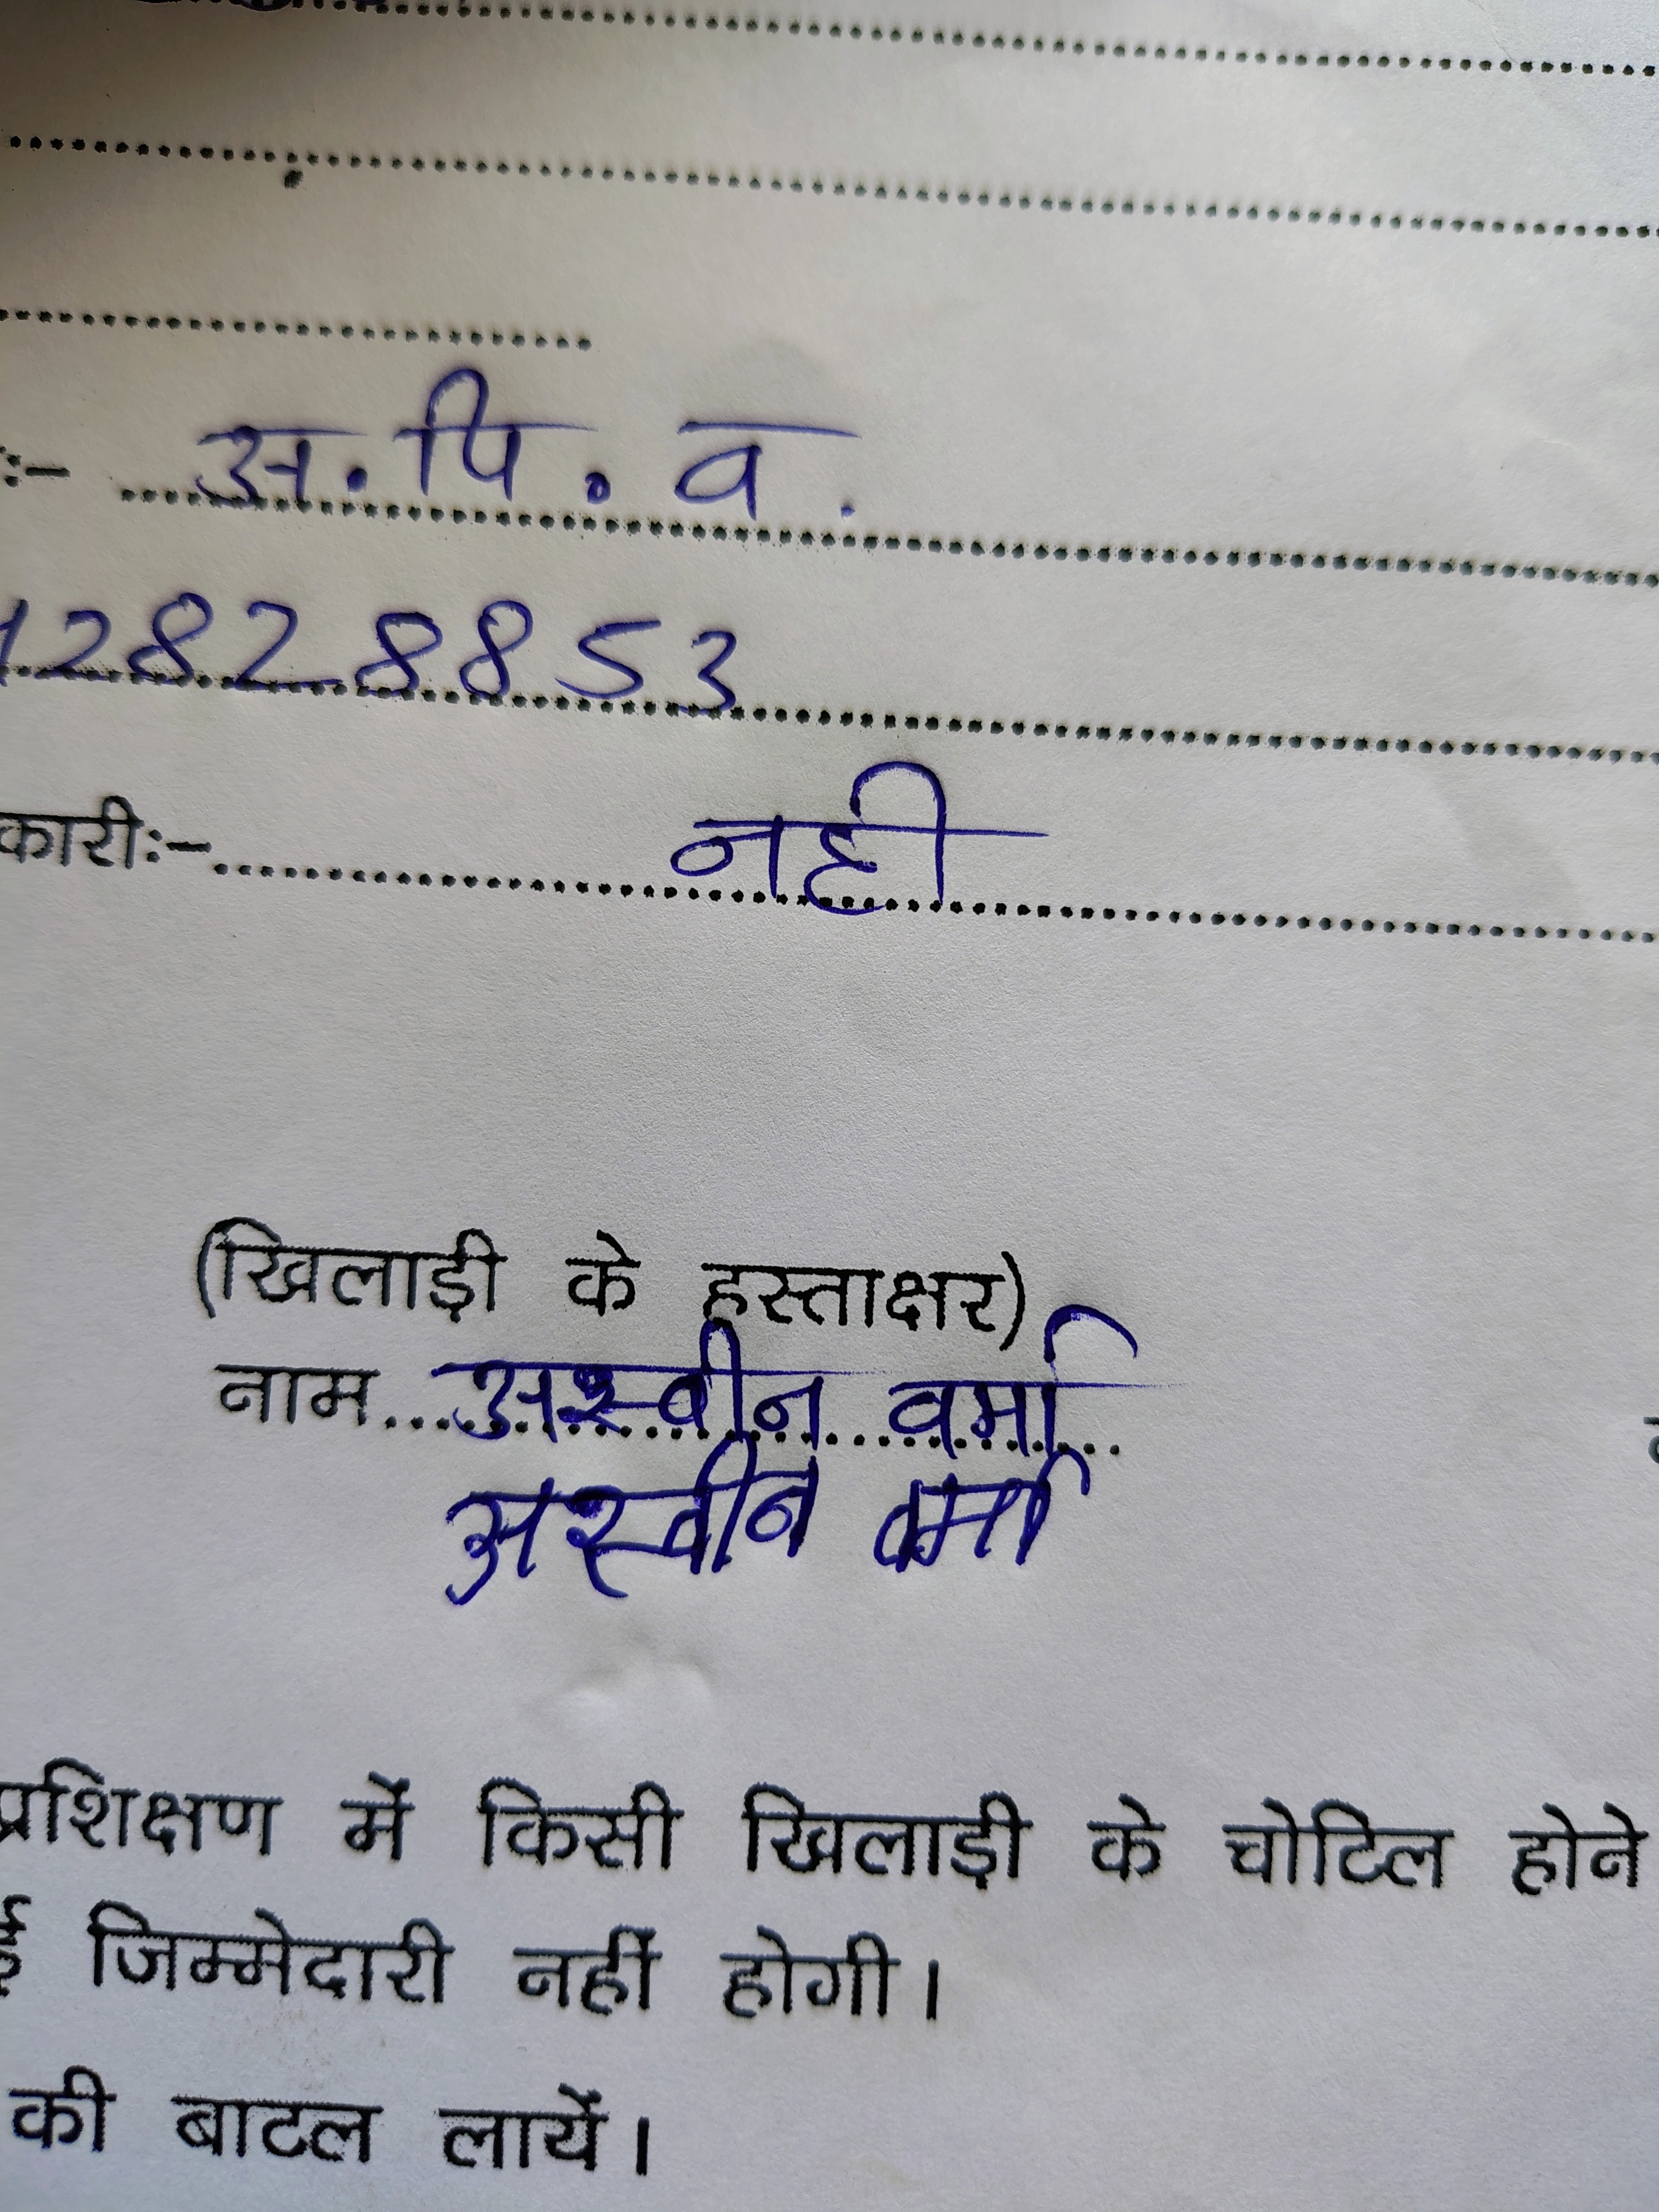 :- अ. पि. व.
1 2 8 2 8 8 5 3
कारी:- नही
(खिलाड़ी के हस्ताक्षर)
नाम अश्वीन वर्मा
अश्वीन वर्मा
प्रशिक्षण में किसी खिलाड़ी के चोटिल होने
ई जिम्मेदारी नहीं होगी।
की बाटल लायें।